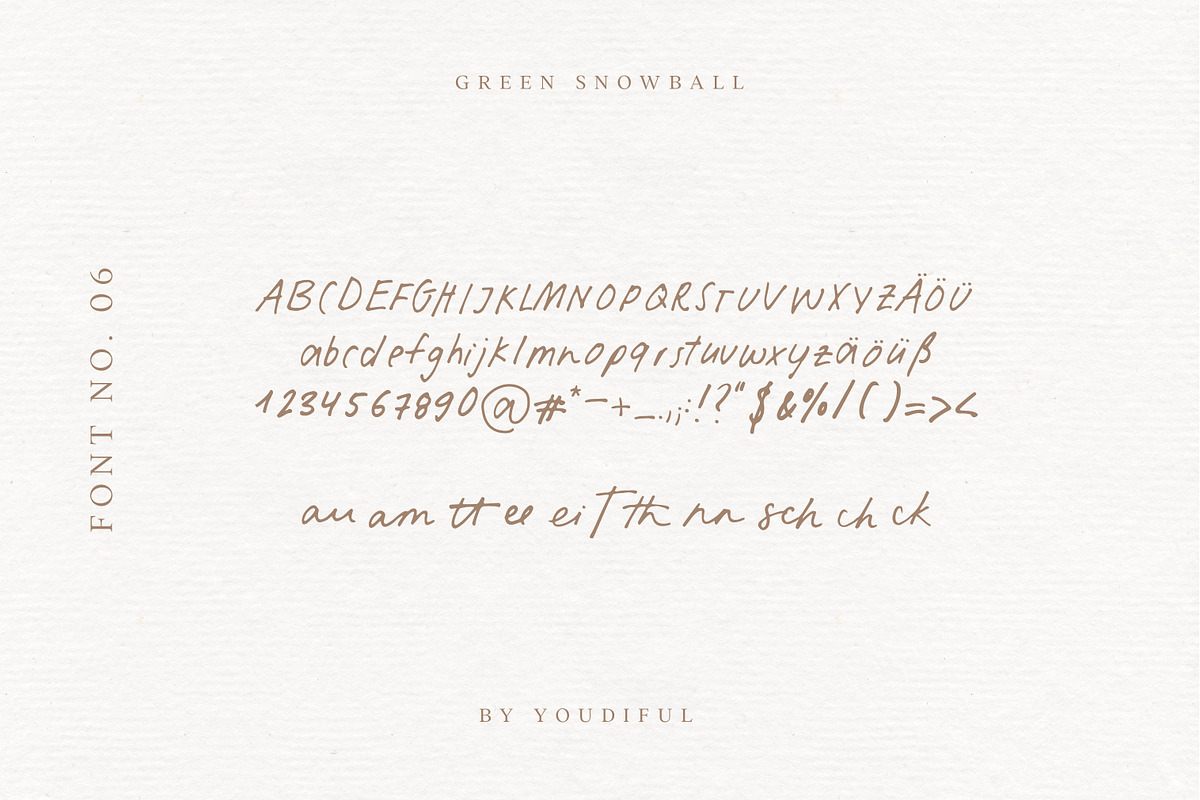 GREEN SNOWBALL
FONT NO. 06
ABCDEFGHIJKLMNOPQRSTUVWXYZÄÖÜ
abcdefghijklmnopqrstuvwxyzäöüß
1234567890@#*–+_.,;:!?"$&%/()=><
au am tt ee ei Tth nn sch ch ck
BY YOUDIFUL